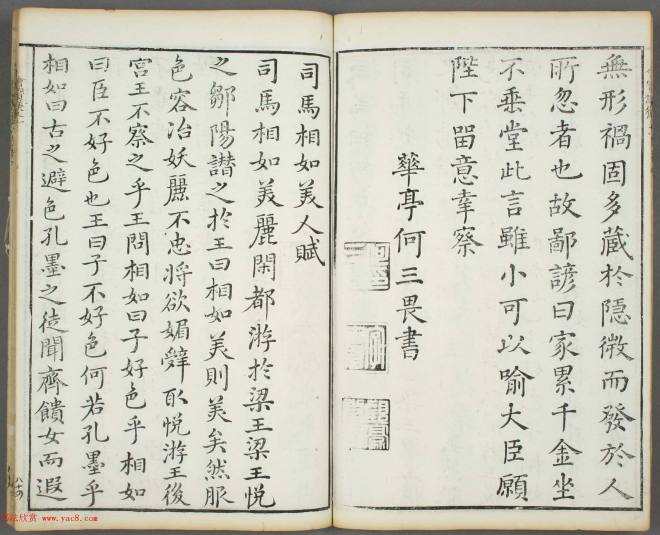 無形禍固多藏於隱微而發於人
所忽者也故鄙諺曰家累千金坐
不垂堂此言雖小可以喻大臣願
陛下留意幸察
華亭何三畏書
司馬相如美人賦
司馬相如美麗閑都游於梁王梁王悅
之鄒陽譖之於王曰相如美則美矣然服
色容冶妖麗不忠將欲媚辭取悅游王後
宮王不察之乎王問相如曰子好色乎相如
曰臣不好色也王曰子不好色何若孔墨乎
相如曰古之避色孔墨之徒聞齊饋女而遐
八十四
书法欣赏 www.yac8.com